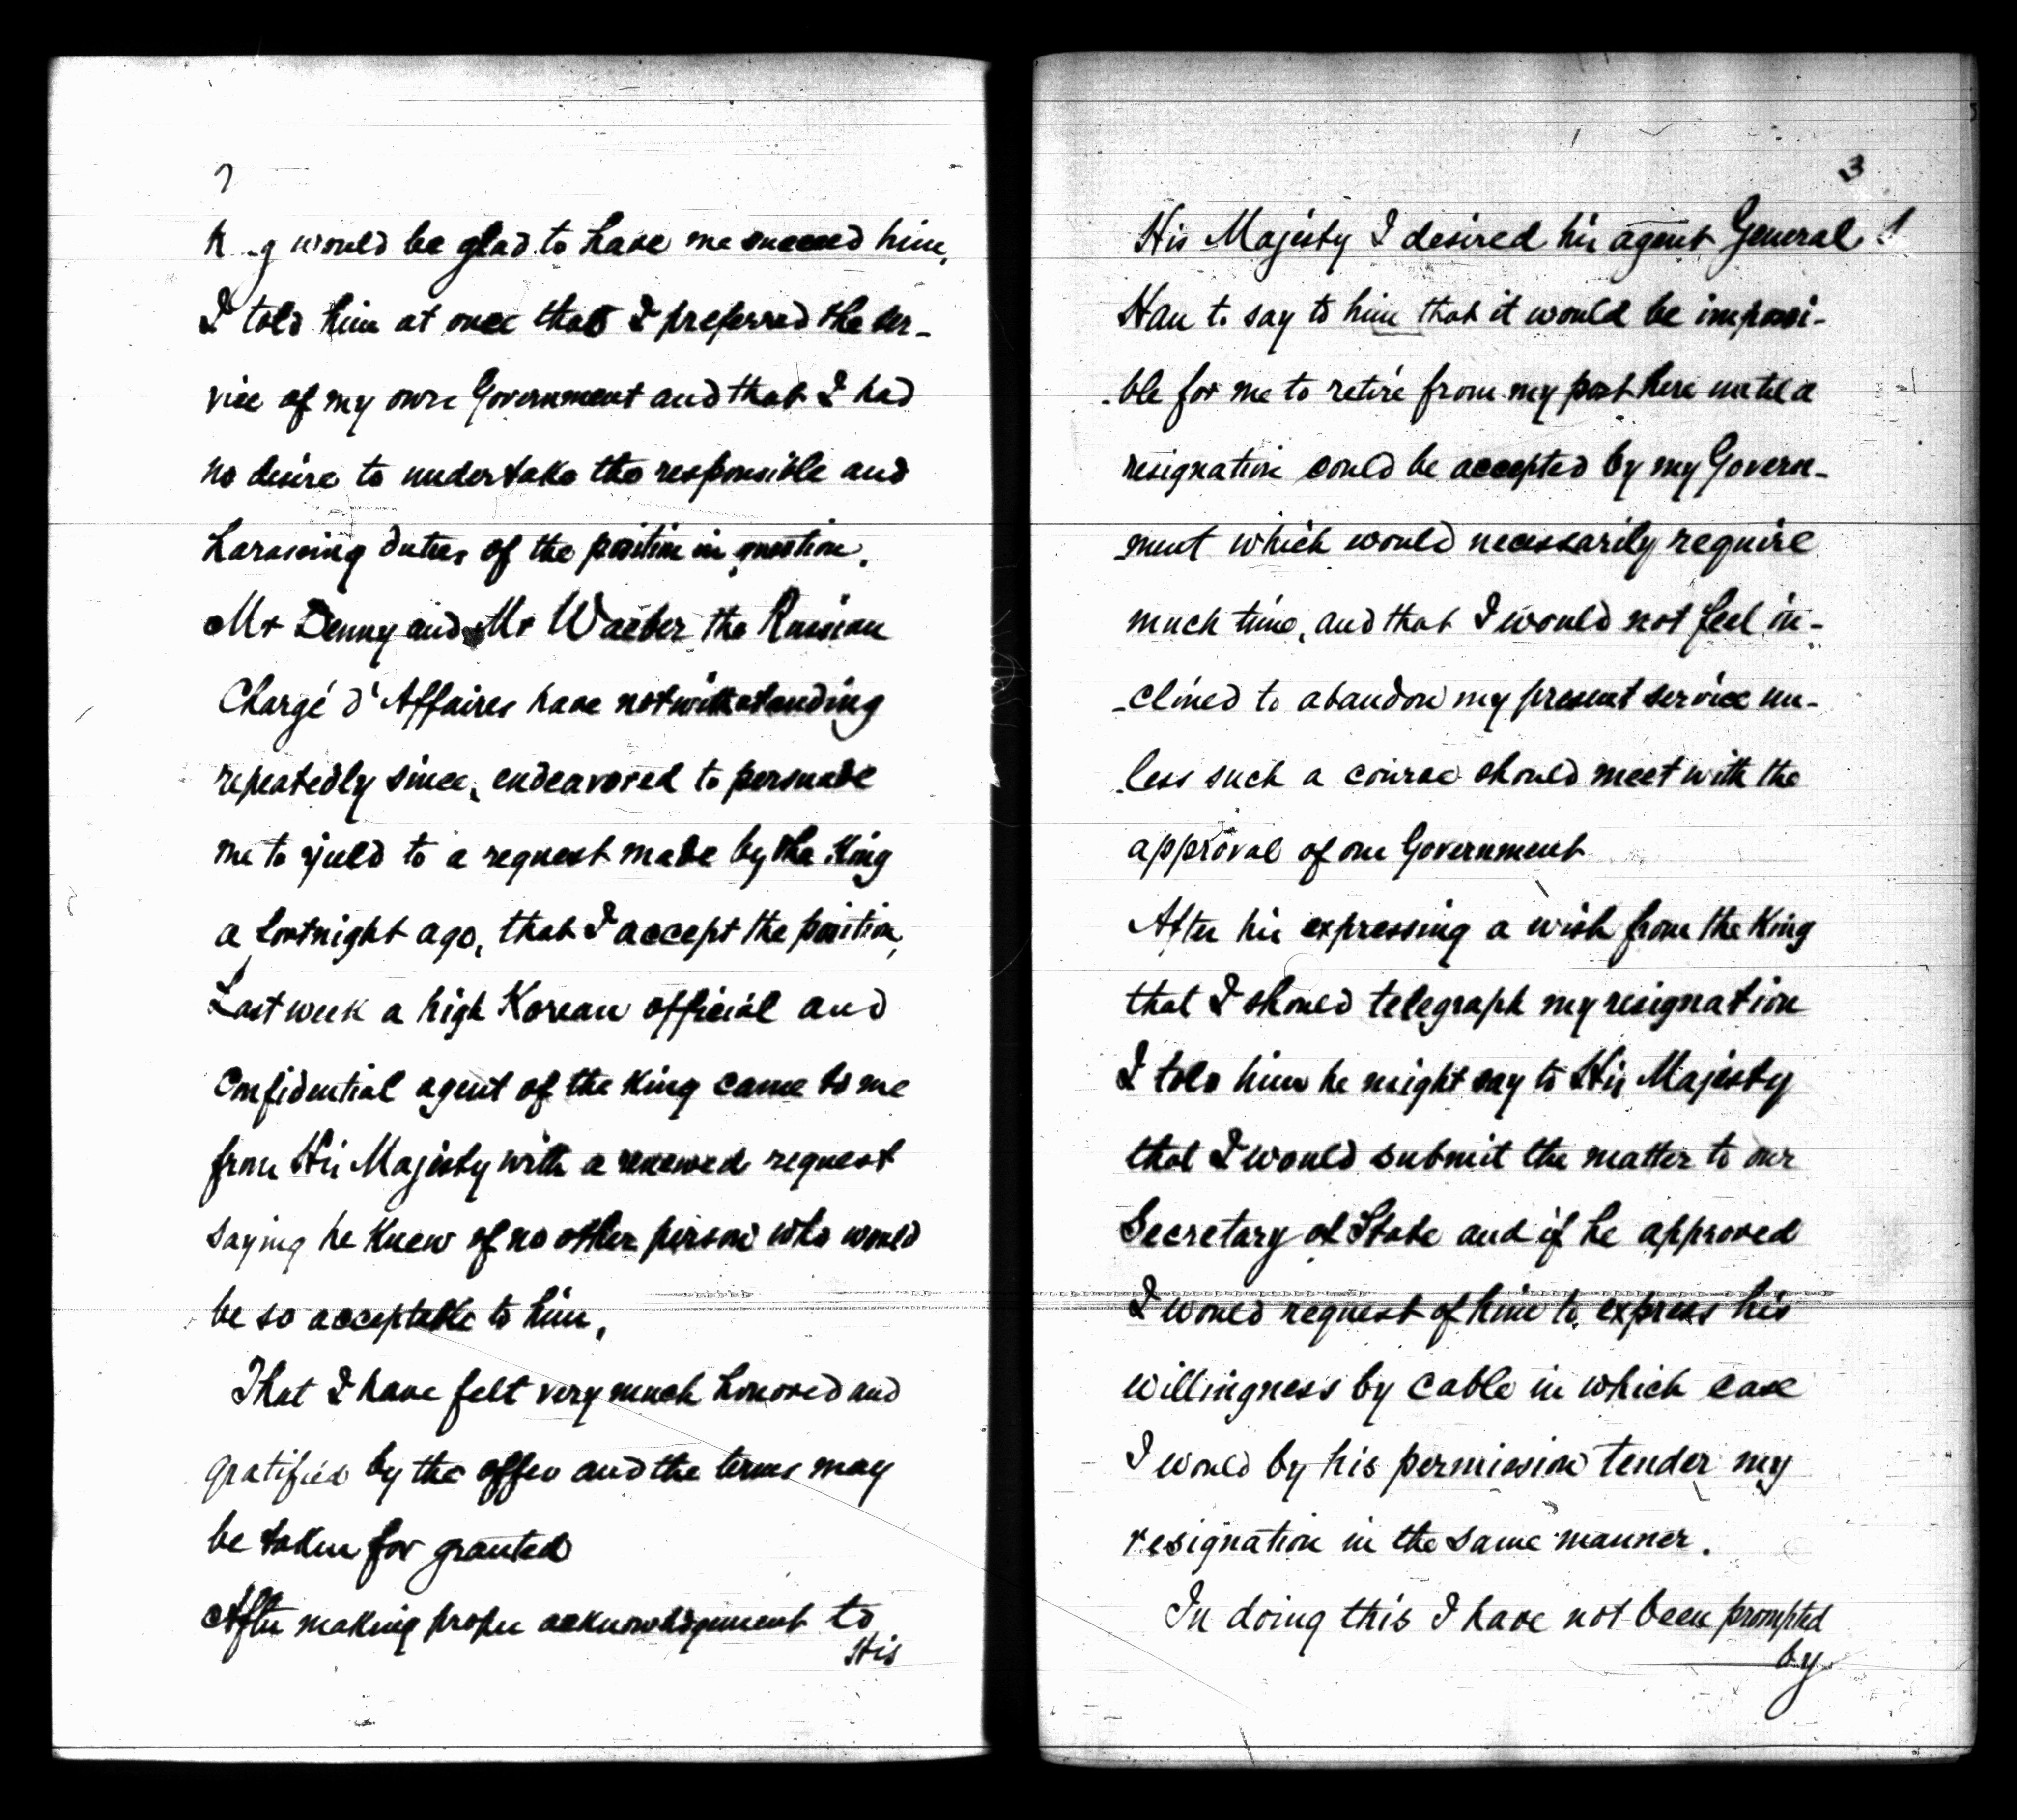 2
K..g would be glad to have me succeed him,
I told him at once that I preferred the ser-
vice of my own Government and that I had
no desire to undertake the responsible and
harassing duties of the position in question.
Mr Denny and Mr Waeber the Russian
Chargé d'Affaires have notwithstanding
repeatedly since, endeavored to persuade
me to yield to a request made by the King
a fortnight ago, that I accept the position,
Last week a high Korean official and
Confidential agent of the King came to me
from His Majesty with a renewed request
saying he knew of no other person who would
be so acceptable to him,
That I have felt very much honored and
gratified by the offer and the terms may
be taken for granted
After making proper acknowledgement to
His
3
His Majesty I desired his agent General
Han to say to him that it would be impossi-
-ble for me to retire from my post here until a
resignation could be accepted by my Govern-
-ment which would necessarily require
much time, and that I would not feel in-
-clined to abandon my present service un-
-less such a course should meet with the
approval of our Government
After his expressing a wish from the King
that I should telegraph my resignation
I told him he might say to His Majesty
that I would submit the matter to our
Secretary of State and if he approved
I would request of him to express his
willingness by cable in which case
I would by his permission tender my
resignation in the same manner.
In doing this I have not been prompted
by